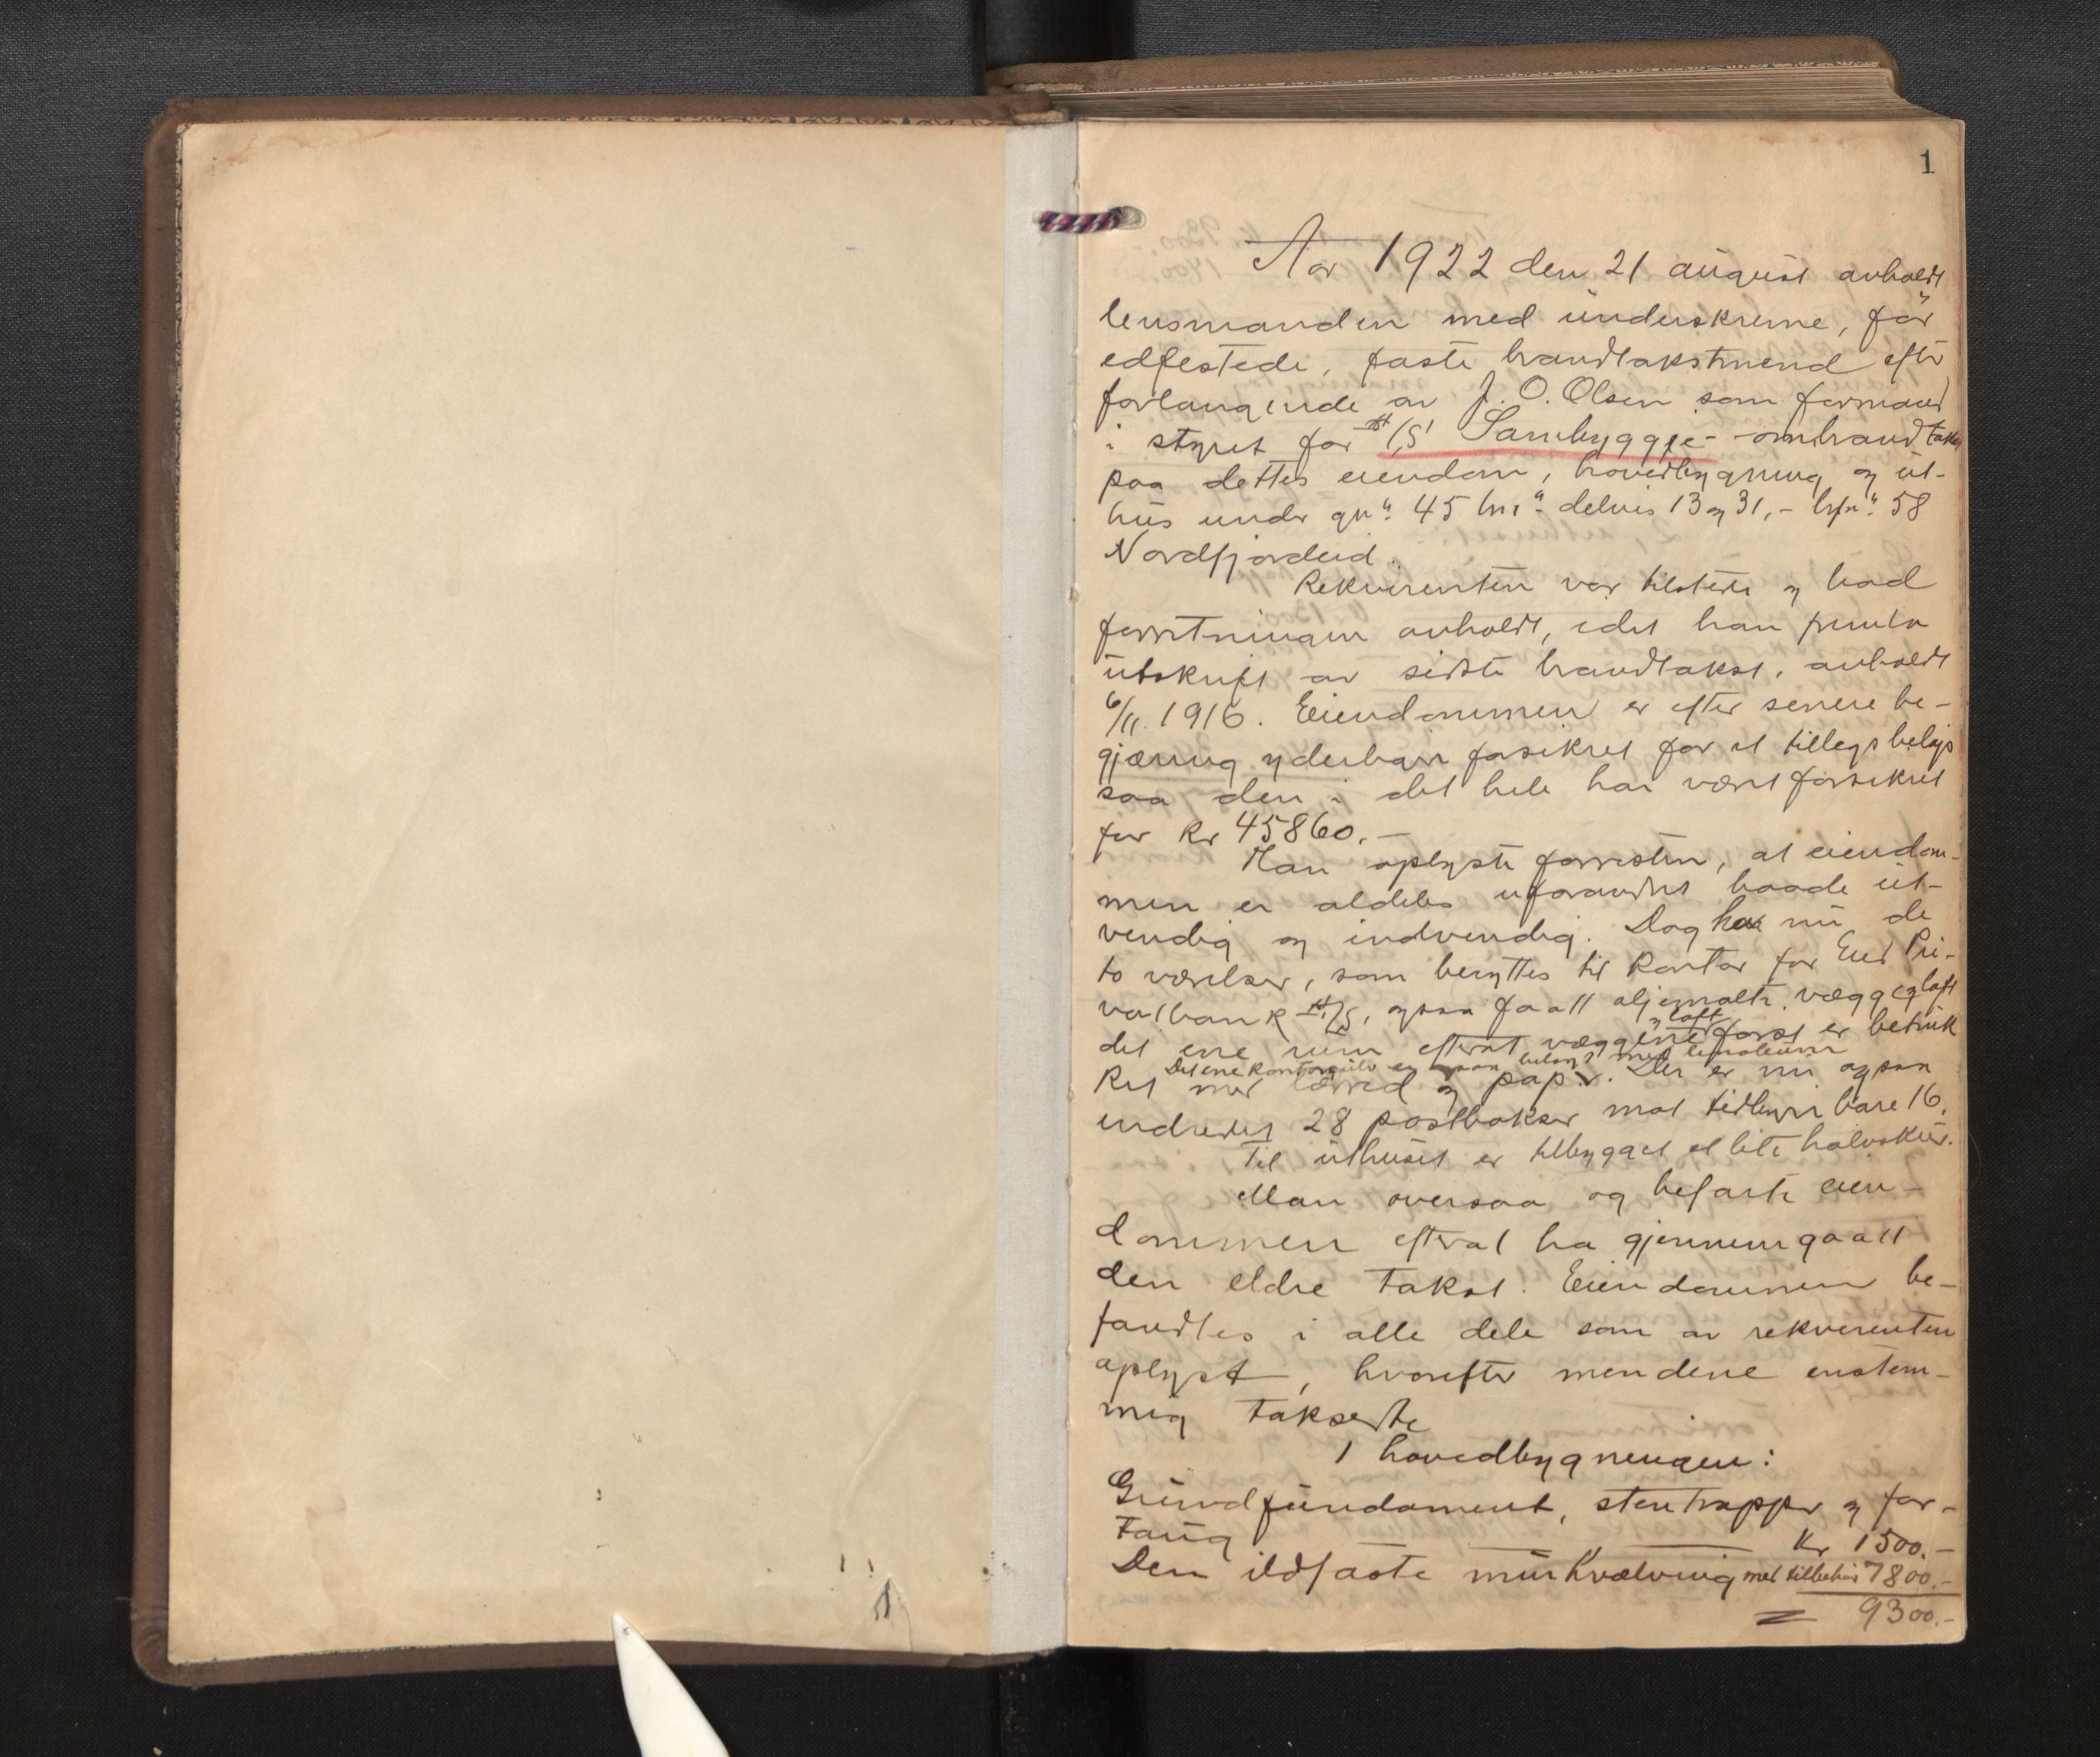 1
Aar 1922 den 21 august avholdt
lensmanden med underskrevne, før
edfestede, faste brandtakstmend efter
forlangende av J. O. Olsen som formand
i styret for A/S Sambygge - ombrandtakst
paa dettes eiendom, hovedbygning og ut-
hus under gn. 45 bn. delvis 13 og 31, - brfn. 58
Nordfjordeid.
Rekvirenten var tilstede og bad
forretningen avholdt, idet han fremla
utskrift av sidste brandtakst, avholdt
6/11. 1916. Eiendommen er efter senere be-
gjæring yderligere forsikret for et tillegsbeløp
saa den i det hele har været forsikret
for kr 45860.-
Han oplyste forresten, at eiendom-
men er aldeles uforandret baade ut-
vendig og indvendig. Dog har nu de
to værelser, som benyttes til kontor for Eid Pri-
vatbank A/S, ogsaa faatt oljemalte vægger og loft
og loft
det ene rum efterat væggene først er betruk
Det ene kontorgulv er ogsaa belagt med linoleum
ket med lærred og papir. Der er nu ogsaa
indredet 28 postbokser mot tidligere bare 16.
Til uthuset er tilbygget et lite halvskur.
Man oversaa og befarte eien-
dommen efterat ha gjennemgaatt
den eldre takst. Eiendommen be-
fandtes i alle dele som av rekvirenten
oplyst, hvorefter mendene enstem-
mig takserte
1 hovedbygningen:
Grundfundament, stentrapper og for-
taug kr 1500.-
Den ildfaste murhvælving med tilbehør 7800.-
= 9300.-